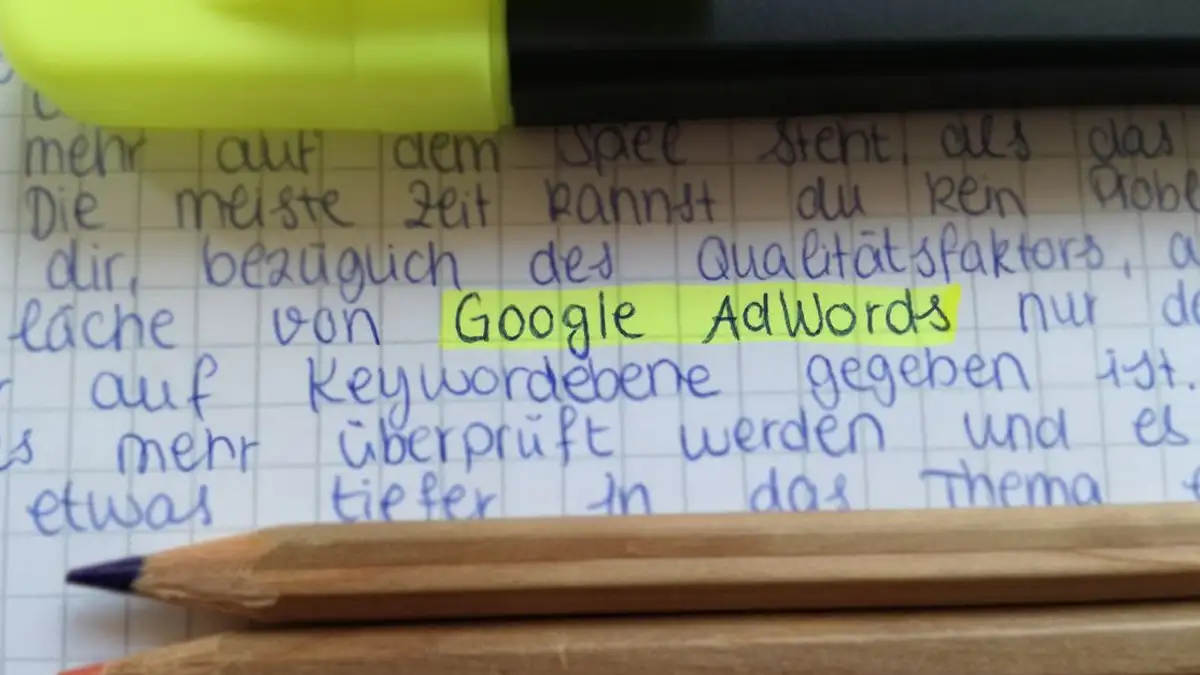 mehr auf dem Spiel steht, als das
Die meiste Zeit kannst du kein Probe
dir, bezüglich des Qualitätsfaktors, a
läche von Google AdWords nur da
auf Keywordebene gegeben ist.
s mehr überprüft werden und es
etwas tiefer in das Thema